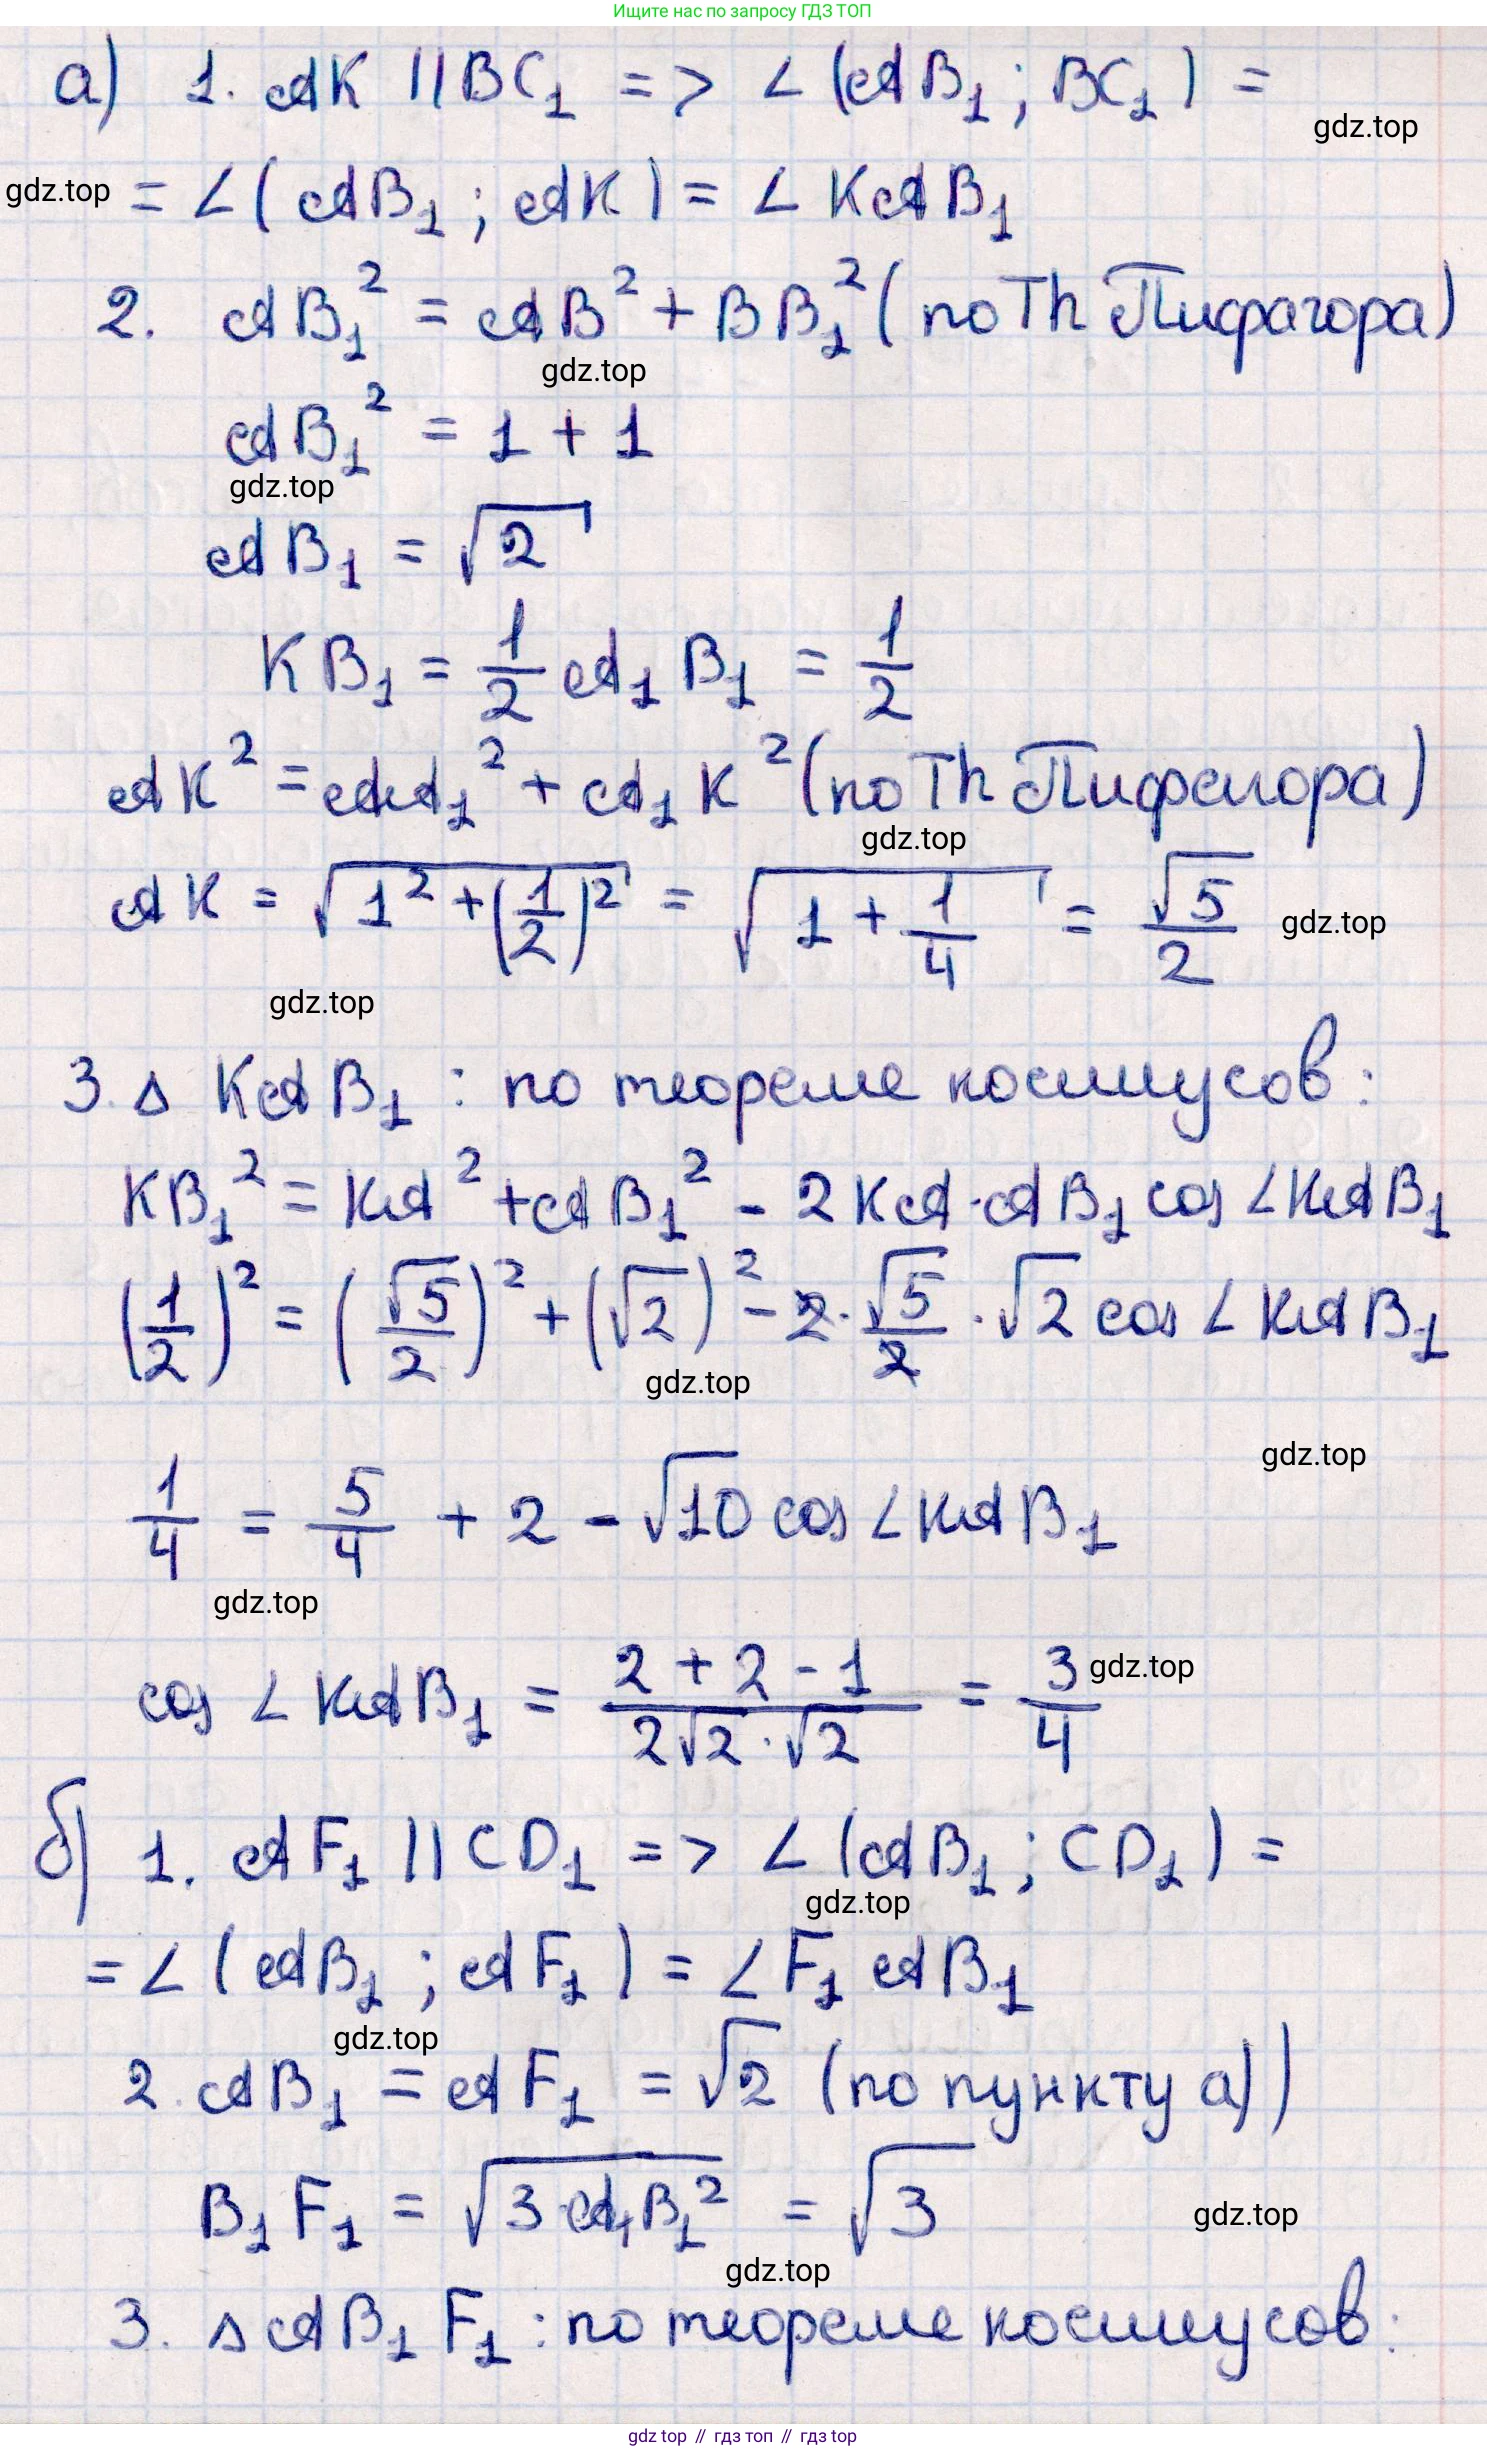 Ищите нас по запросу ГДЗ ТОП
а) 1. AK || BC₁ => ∠(AB₁; BC₁) =
gdz.top
gdz.top = ∠(AB₁; AK) = ∠KAB₁
2. AB₁² = AB² + BB₁² (по Th Пифагора)
gdz.top
AB₁² = 1 + 1
gdz.top
AB₁ = √2
KB₁ = 1/2 A₁B₁ = 1/2
AK² = AA₁² + A₁K² (по Th Пифагора)
gdz.top
AK = √(1² + (1/2)²) = √(1 + 1/4) = √5/2 gdz.top
gdz.top
3. △ KAB₁ : по теореме косинусов:
KB₁² = KA² + AB₁² - 2KA·AB₁ cos ∠KAB₁
(1/2)² = (√5/2)² + (√2)² - 2·√5/2·√2 cos ∠KAB₁
gdz.top
gdz.top
1/4 = 5/4 + 2 - √10 cos ∠KAB₁
gdz.top
cos ∠KAB₁ = (2 + 2 - 1)/(2√2·√2) = 3/4 gdz.top
б) 1. AF₁ || CD₁ => ∠(AB₁; CD₁) =
gdz.top
= ∠(AB₁; AF₁) = ∠F₁AB₁
gdz.top
2. AB₁ = AF₁ = √2 (по пункту а))
B₁F₁ = √(3·A₁B₁²) = √3
gdz.top
gdz.top
3. △AB₁F₁ : по теореме косинусов:
gdz top // гдз топ // gdz top